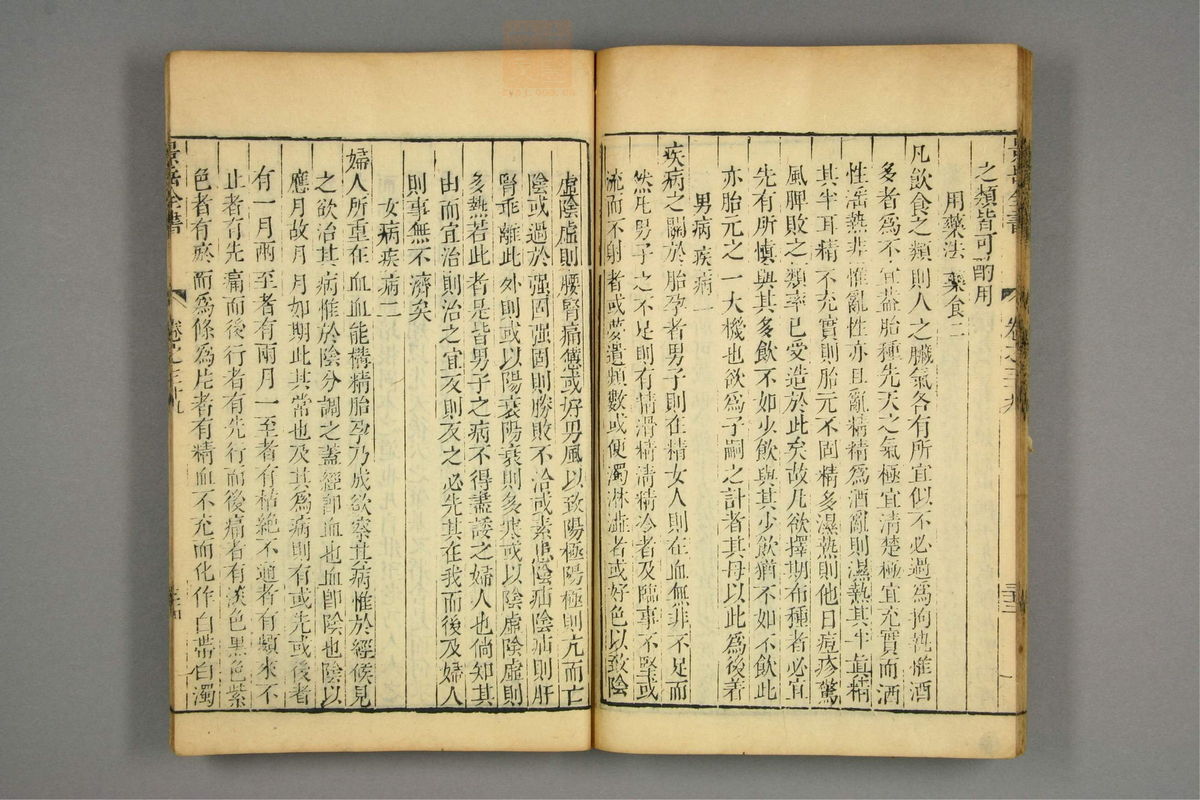 之類皆可酌用
用藥法 藥食二
凡飲食之類則人之臟氣各有所宜似不必過爲拘執惟酒
多者爲不宜蓋胎種先天之氣極宜清楚極宜充實而酒
性淫熱非惟亂性亦且亂精精爲酒亂則濕熱其半真精
其半耳精不充實則胎元不固精多濕熱則他日痘疹驚
風脾敗之類率已受造於此矣故凡欲擇期布種者必宜
先有所慎與其多飲不如少飲與其少飲猶不如不飲此
亦胎元之一大機也欲爲子嗣之計者其毋以此爲後着
男病 疾病一
疾病之關於胎孕者男子則在精女人則在血無非不足而
然凡男子之不足則有精滑精清精冷者及臨事不堅或
流而不射者或夢遺頻數或便濁淋澁者或好色以致陰
虛陰虛則腰腎痛憊或好男風以致陽極陽極則亢而亡
陰或過於强固强固則勝敗不洽或素患陰疝陰疝則肝
腎乖離此外則或以陽衰陽衰則多寒或以陰虛陰虛則
多熱若此者是皆男子之病不得盡諉之婦人也倘知其
由而宜治則治之宜反則反之必先其在我而後及婦人
則事無不濟矣
女病 疾病二
婦人所重在血血能構精胎孕乃成欲察其病惟於經候見
之欲治其病惟於陰分調之蓋經即血也血即陰也陰以
應月故月月如期此其常也及其爲病則有或先或後者
有一月兩至者有兩月一至者有枯絶不通者有頻來不
止者有先痛而後行者有先行而後痛者有淡色黑色紫
色者有瘀而爲條爲片者有精血不充而化作白帶白濁
景岳全書
卷之三十九
三十三
景岳全書
卷之三十九
三十四